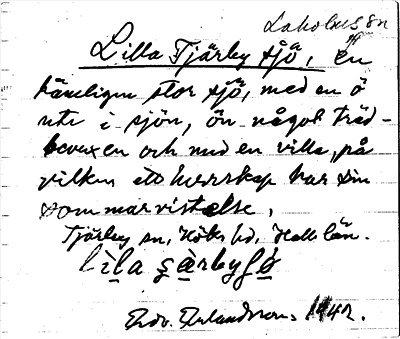 Laholms sn
Lilla Tjärby sjö, En
hämligen stor sjö, med en ö
ute i sjön, ön något träd-
bevuxen och med en villa, på
vilken ett herrskap har sin
sommarvistelse,
Tjärby sn, Höks hd, Hall. län.
lila
Edv. Erlandsson, 1942.